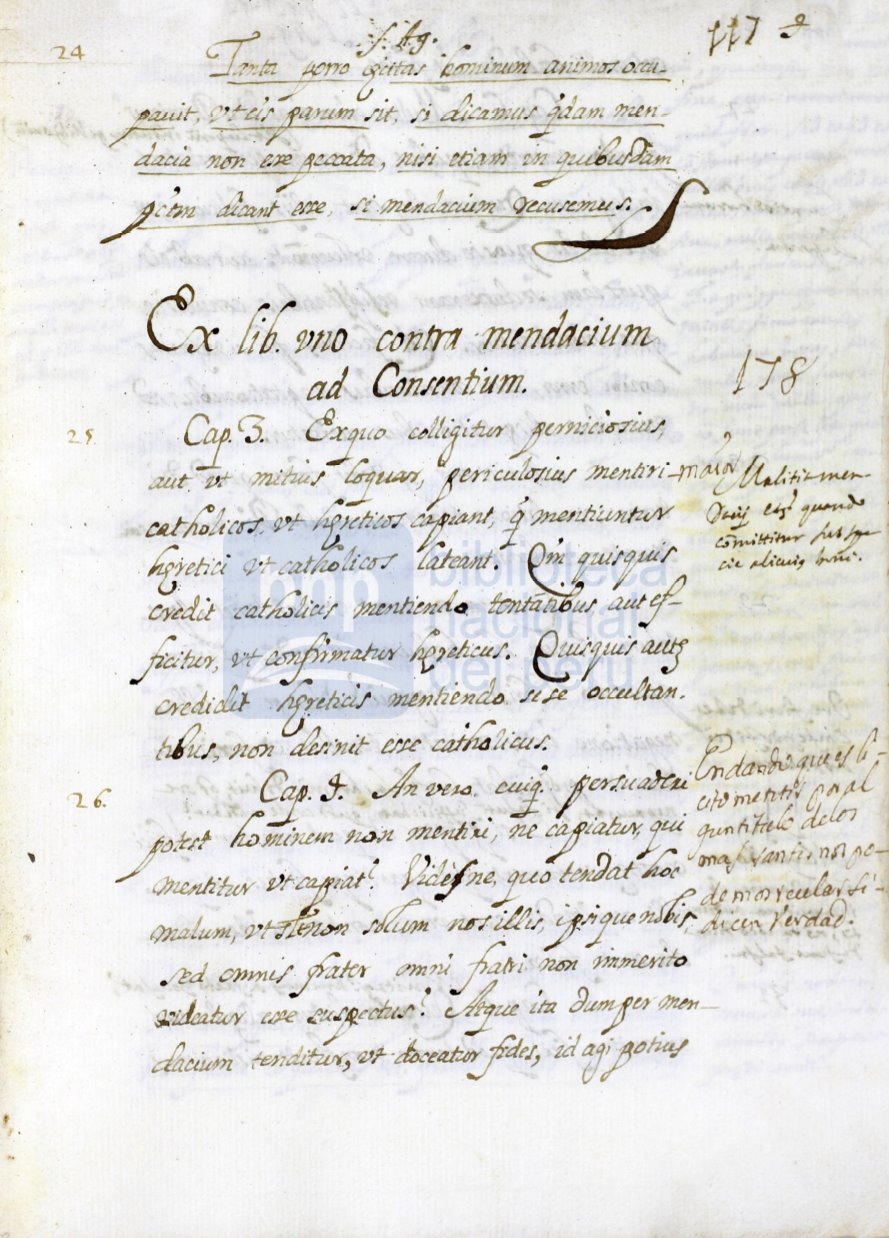 S. Ag.
117 9
24 Tanta porro cęcitas hominum animos occu-
pauit, vt eis parum sit, si dicamus q̃dam men-
dacia non eẽe peccata, nisi etiam in quibusdam
pctm dicant esse, si mendacium recusemus.
Ex lib. vno contra mendacium
ad Consentium.
178
25 Cap. 3. Ex quo colligitur perniciosius,
aut vt mitius loquar, periculosius mentiri
catholicos, vt hęreticos capiant, q̃ mentiuntur
hęretici vt catholicos lateant. Qm̃ quisquis
credit catholicis mentiendo tentãtibus, aut ef-
ficitur, vt confirmatur hęreticus. Quisquis autẽ
credidit hęreticis mentiendo sese occultan-
tibus, non desinit esse catholicus.
maior Malitia men
dacij est quando
comittitur sub spe
cie alicuiꝰ boni.
26. Cap. 4. An vero, cuiq̃ persuaderi
potest hominem non mentiri, ne capiatur, qui
mentitur vt capiat? Vidèsne, quo tendat hoc
malum, vt non solum nos illis, ipsique nobis,
sed omnis frater omni fratri non immerito
videatur esse suspectus? Atque ita dum per men-
dacium tenditur, vt doceatur fides, id agi potius
que es li-
cito mentir por al
gun titulo de los
no po-
demos recelar si
dicen verdad.
biblioteca
nacional
del perú
bnp